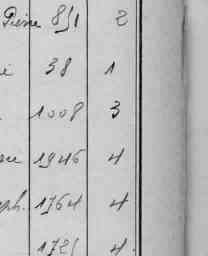 Pierre 851 2
38 1
1008 3
1946 4
ph. 1764 4
1725 4.